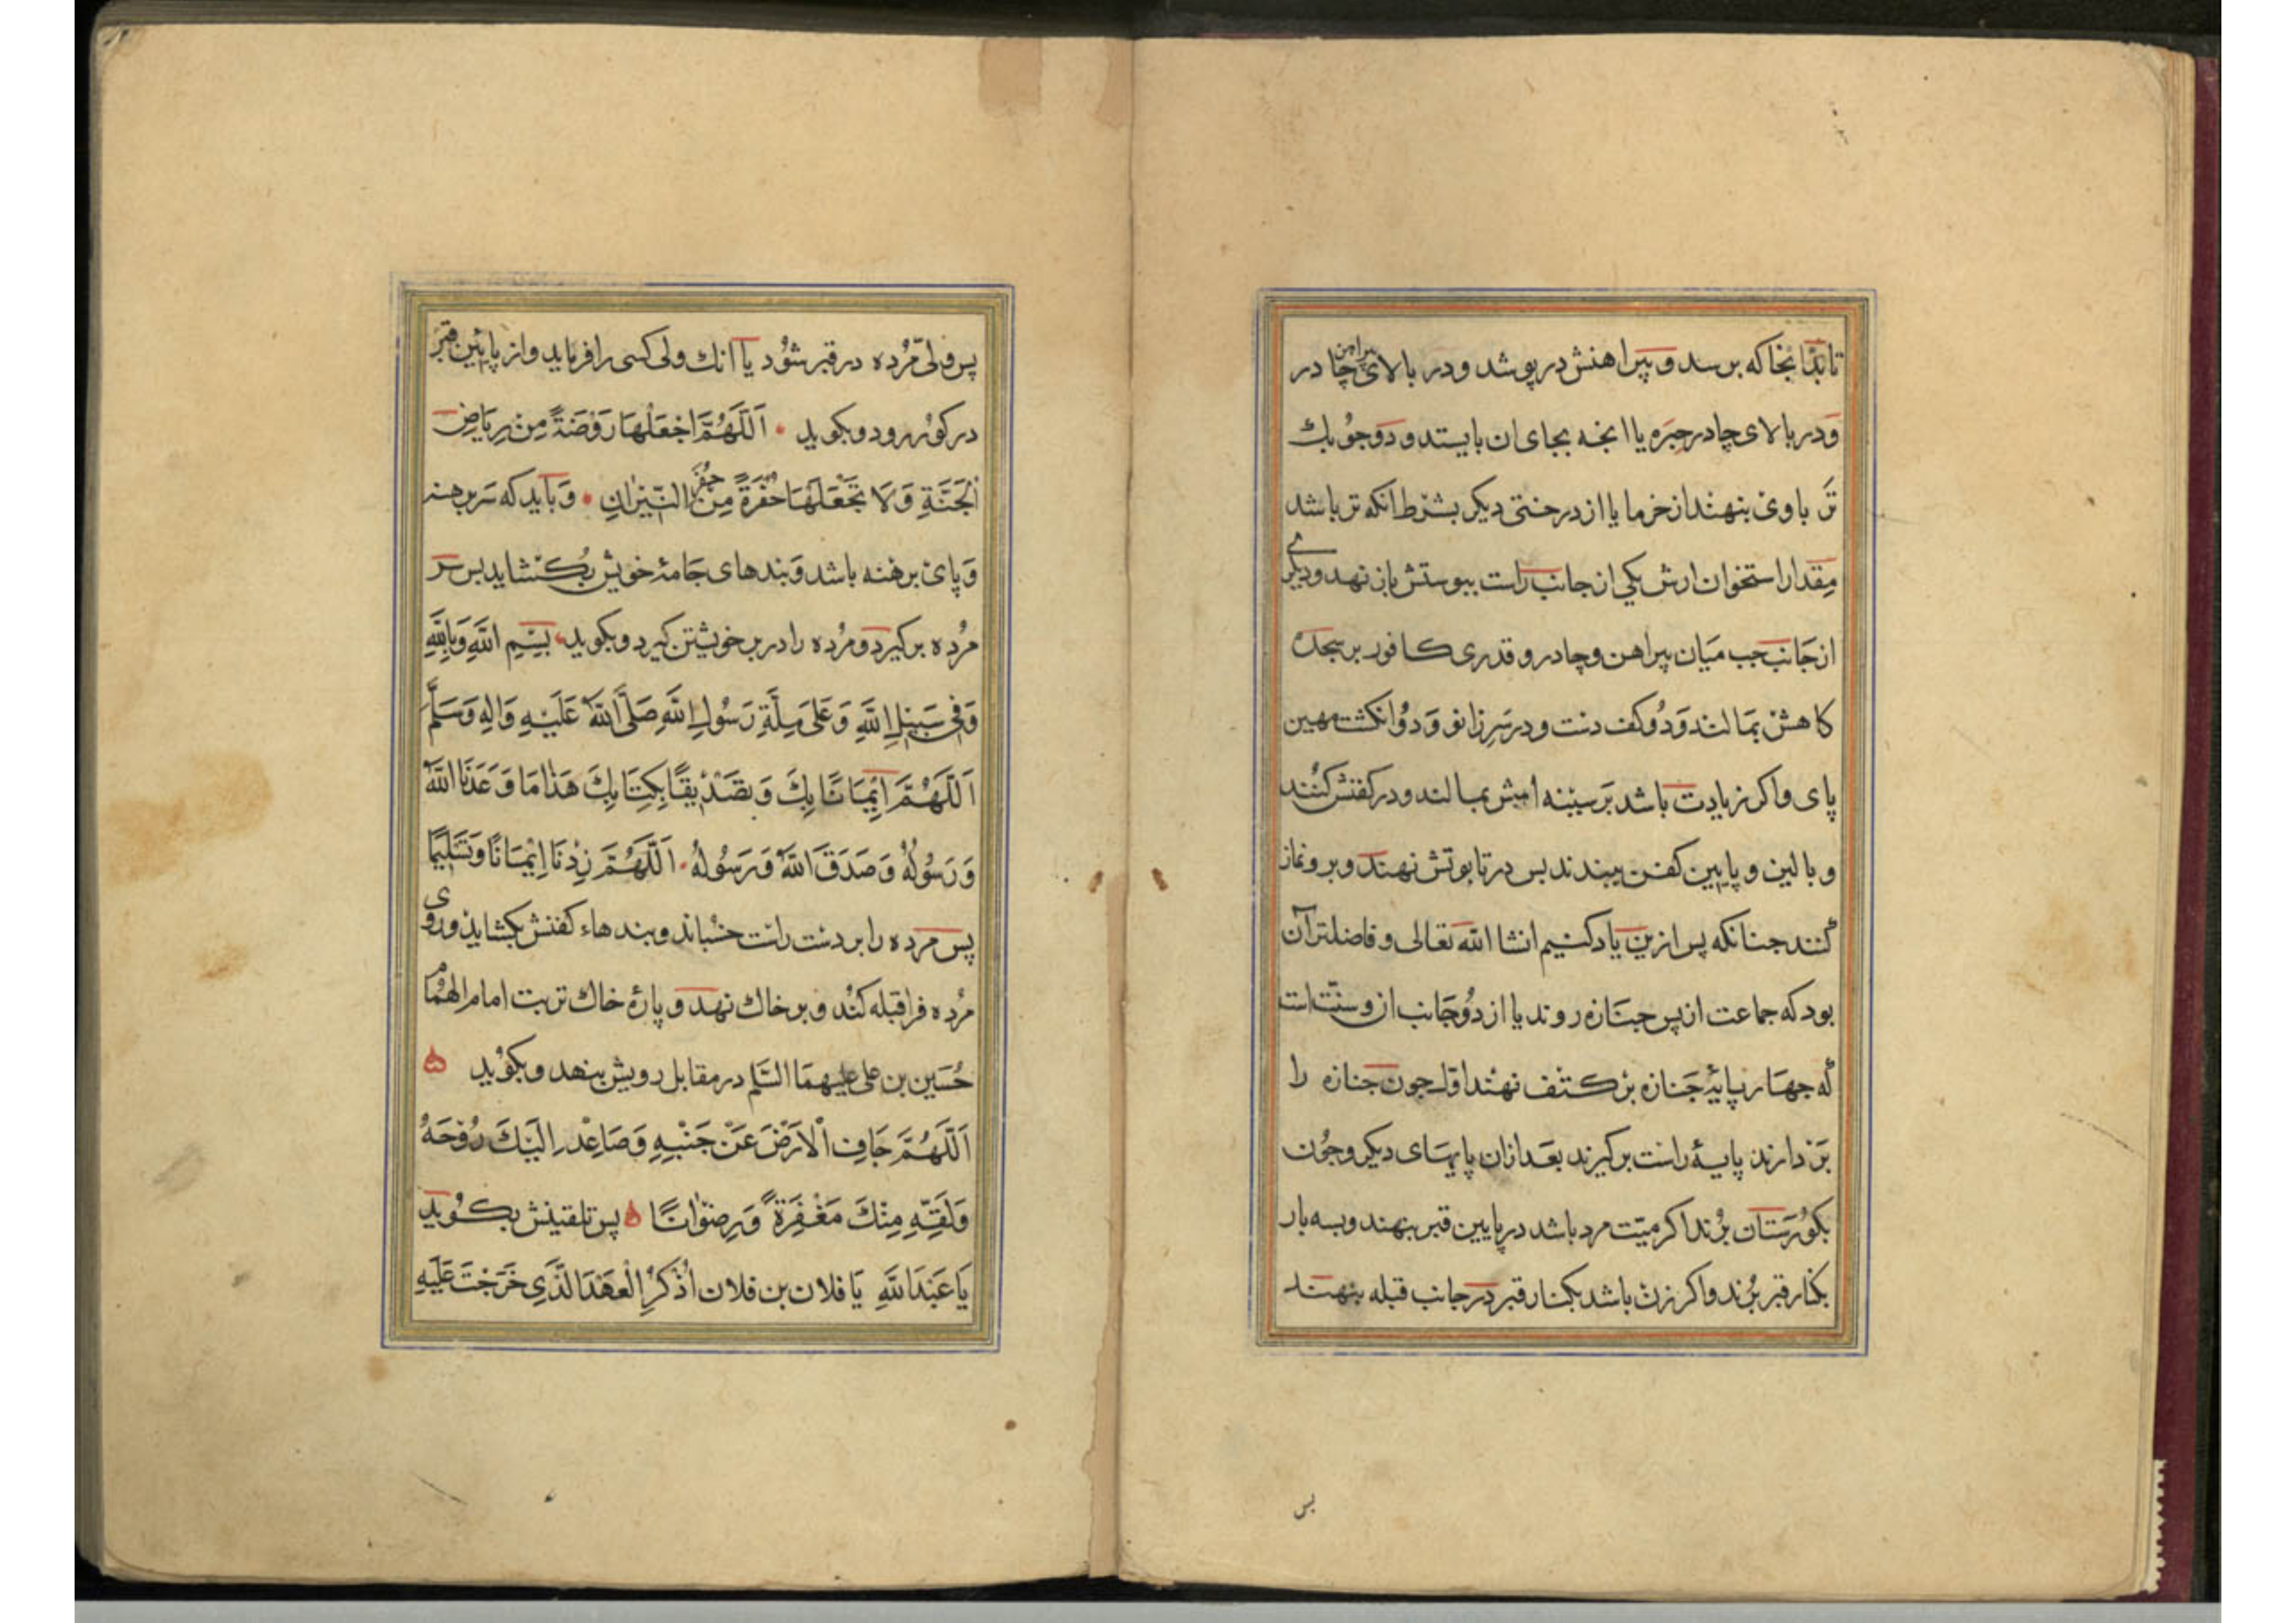 تا بدانجا که برسد و پیراهنش در پوشد و در بالای پیراهن چادر
و در بالای چادر حبره یا انچه بجای ان بایستد و دو جوبک
تر باوی بنهند از خرما یا از درختی دیکر بشرط انکه تر باشد
مقدار استخوان ارش یکی از جانب راست ببوستش باز نهد و دیکری
از جانب جب میان پیراهن و چادر و قدری کافور بر سجده
کاهش بمالند و دو کف دست و در سر زانو و دو انکشت مهین
پای واکر زیادت باشد بر سینه اش بمالند و در کفنش کنند
و بالین و پایین کفن ببندند بس در تابوتش نهند و برو نماز
کنند جنانکه پس ازین یاد کنیم انشا الله تعالی و فاضلتر آن
بود که جماعت از پس جنازه روند یا از دو جانب او و سنت است
که جهار پایهٔ جنازه بر کتف نهند اول جون جنازه را
بر دارند پایهٔ راست بر کیرند بعد ازان پایهای دیکر وجون
بکورستان برند اکر میت مرد باشد در پایین قبر بنهند و بسه بار
بکنار قبر برند واکر زن باشد بکنار قبر در جانب قبله بنهند
بس
پس ولی مرده در قبر شود یا انک ولی کسی را فرماید و از پایین قبر
در کور رود و بکوید اَللّهُمَّ اجْعَلْهَا رَوْضَةً مِنْ رِيَاضِ
الْجَنَّةِ وَلَا تَجْعَلْهَا حُفْرَةً مِنْ حُفَرِ النِّيرَانِ وباید که سر برهنه
وپای برهنه باشد وبندهای جامهٔ خویش بکشاید بس سر
مرده بر کیرد و مرده را در بر خویشتن کیرد و بکوید بِسْمِ اللهِ وَبِاللهِ
وَفِي سَبِيلِ اللهِ وَعَلَى مِلَّةِ رَسُولِ اللهِ صَلَّى اللهُ عَلَيْهِ وَالِهِ وَسَلَّمَ
اَللّهُمَّ اِيْمَانًا بِكَ وَتَصْدِيْقًا بِكِتَابِكَ هَذَا مَا وَعَدَنَا اللهُ
وَرَسُولُهُ وَصَدَقَ اللهُ وَرَسُولُهُ اَللّهُمَّ زِدْنَا اِيْمَانًا وَتَسْلِيمًا
پس مرده را بر دست راست خسباند و بندهاء کفنش بکشاید و روی
مرده فرا قبله کند و بر خاك نهد و پارهٔ خاك تربت امام الهمام
حسین بن علی علیهما السلم در مقابل رویش بنهد و بکوید
اَللّهُمَّ جَافِ الْاَرْضَ عَنْ جَنْبَيْهِ وَصَاعِدْ اِلَيْكَ رُوْحَهُ
وَلَقِّهِ مِنْكَ مَغْفِرَةً وَرِضْوَانًا پس تلقینش بکوید
يَا عَبْدَ اللهِ يَا فلان بن فلان اُذْكُرِ الْعَهْدَ الَّذِي خَرَجْتَ عَلَيْهِ